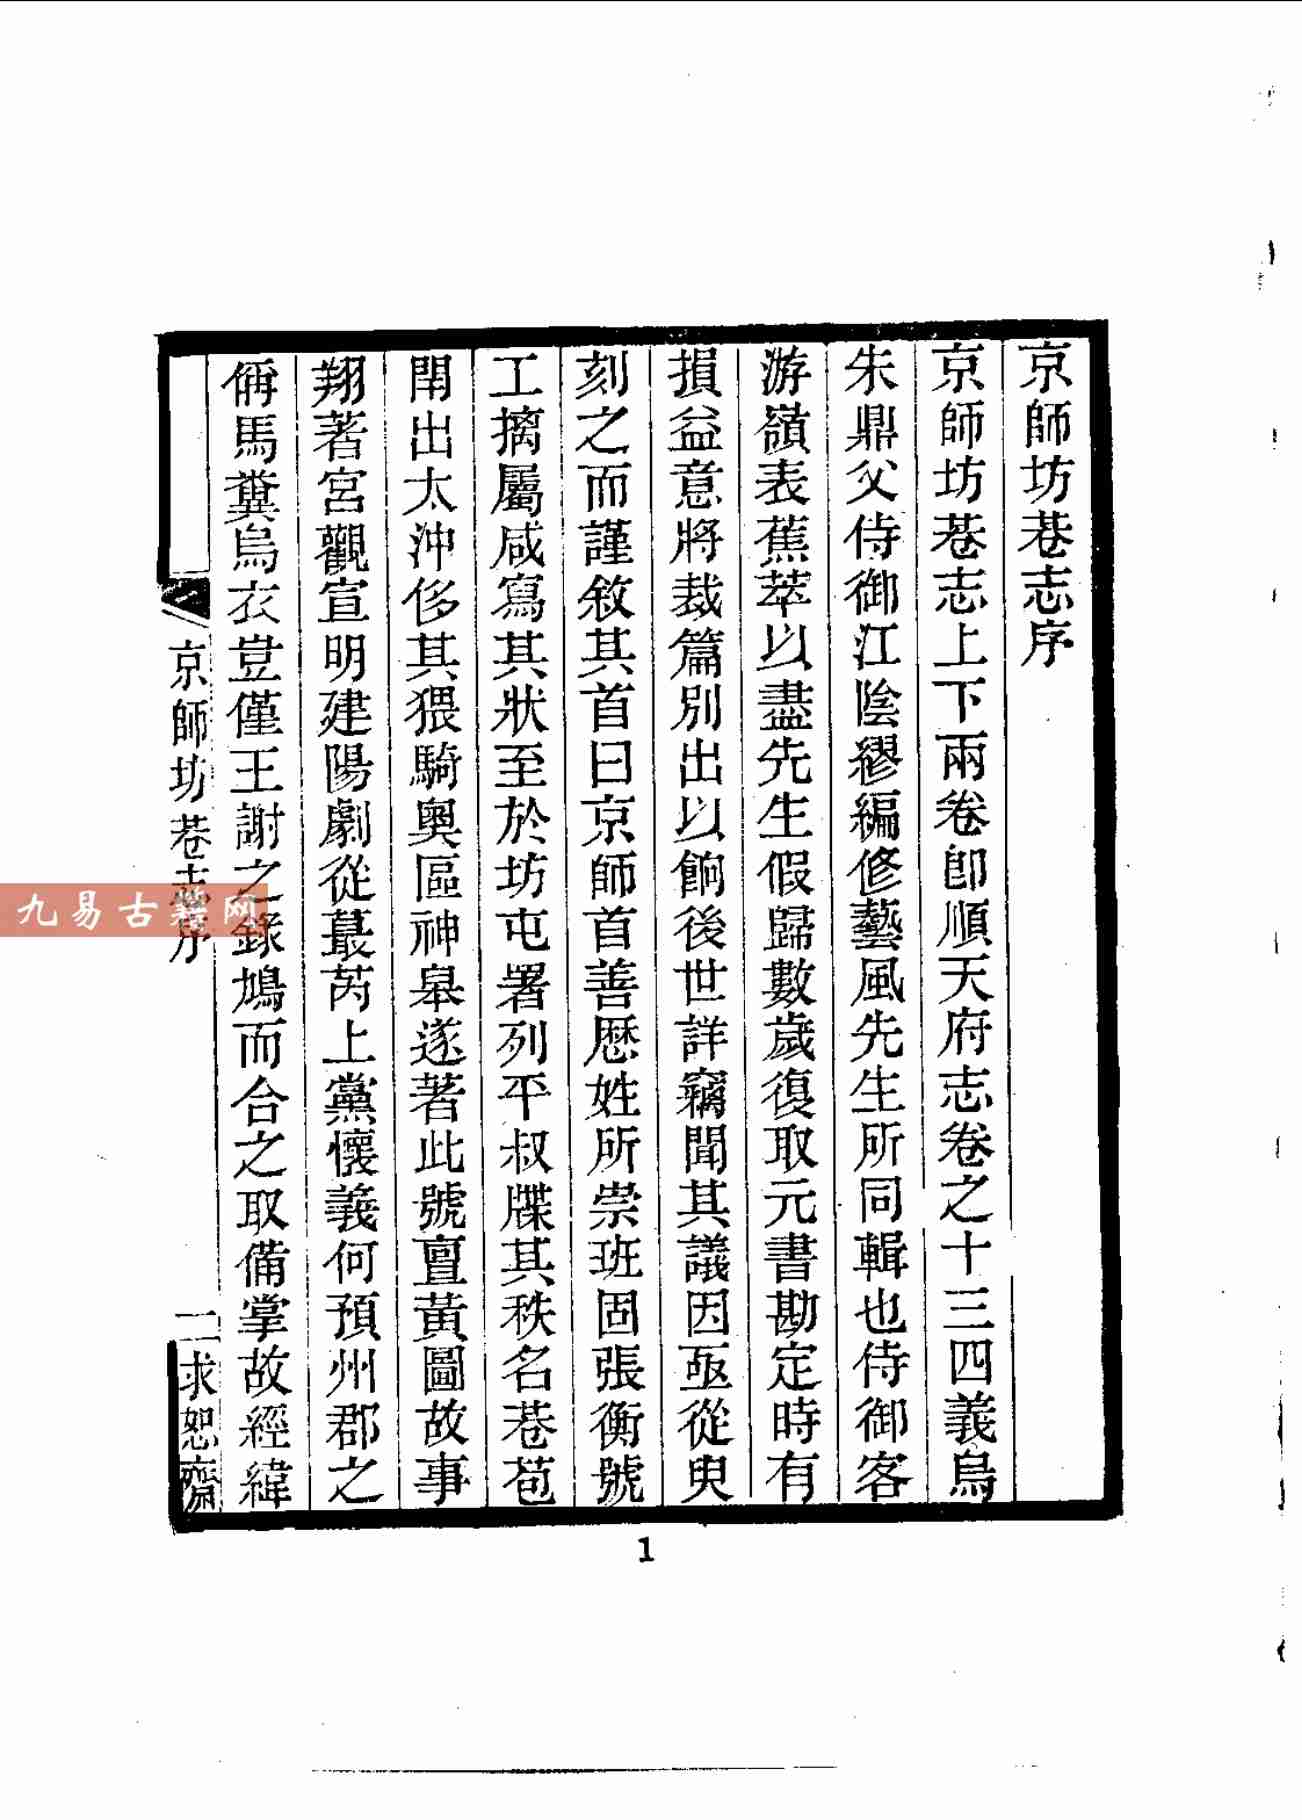 京師坊巷志序
京師坊巷志上下兩卷卽順天府志卷之十三四義烏
朱鼎父侍御江陰繆編修藝風先生所同輯也侍御客
游嶺表蕉萃以盡先生假歸數歲復取元書勘定時有
損益意將裁篇別出以餉後世詳竊聞其議因亟從臾
刻之而謹敘其首曰京師首善曆姓所崇班固張衡號
工摛屬咸寫其狀至於坊屯署列平叔牒其秩名巷苞
閈出太沖侈其猥騎奧區神皋遂著此號亶黃圖故事
翔著宮觀宣明建陽劇從蕞芮上黨懷義何預州郡之
偁馬糞烏衣豈僅王謝之錄鳩而合之取備掌故經緯
京師坊巷志序
一
求恕齋
九易古籍网
1